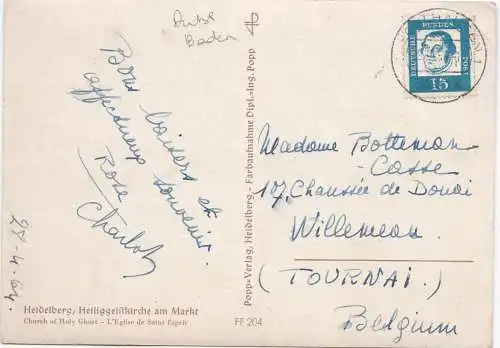 Baden
Bons baisers et
affectueux souvenirs.
Rose
Charlotte
28-4-64.
Heidelberg, Heiliggeistkirche am Markt
Church of Holy Ghost - L'Eglise de Saint Esprit
FF 204
Popp-Verlag, Heidelberg - Farbaufnahme Dipl.-Ing. Popp
DEUTSCHE
BUNDES
POST
15
Madame Botteman-
Casse
17, Chaussée de Douai
Willemeau.
(TOURNAI.)
Belgium